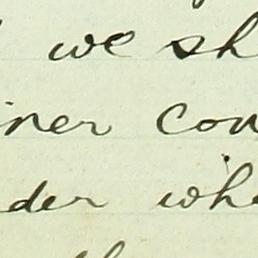 we sh
iner con
der whe